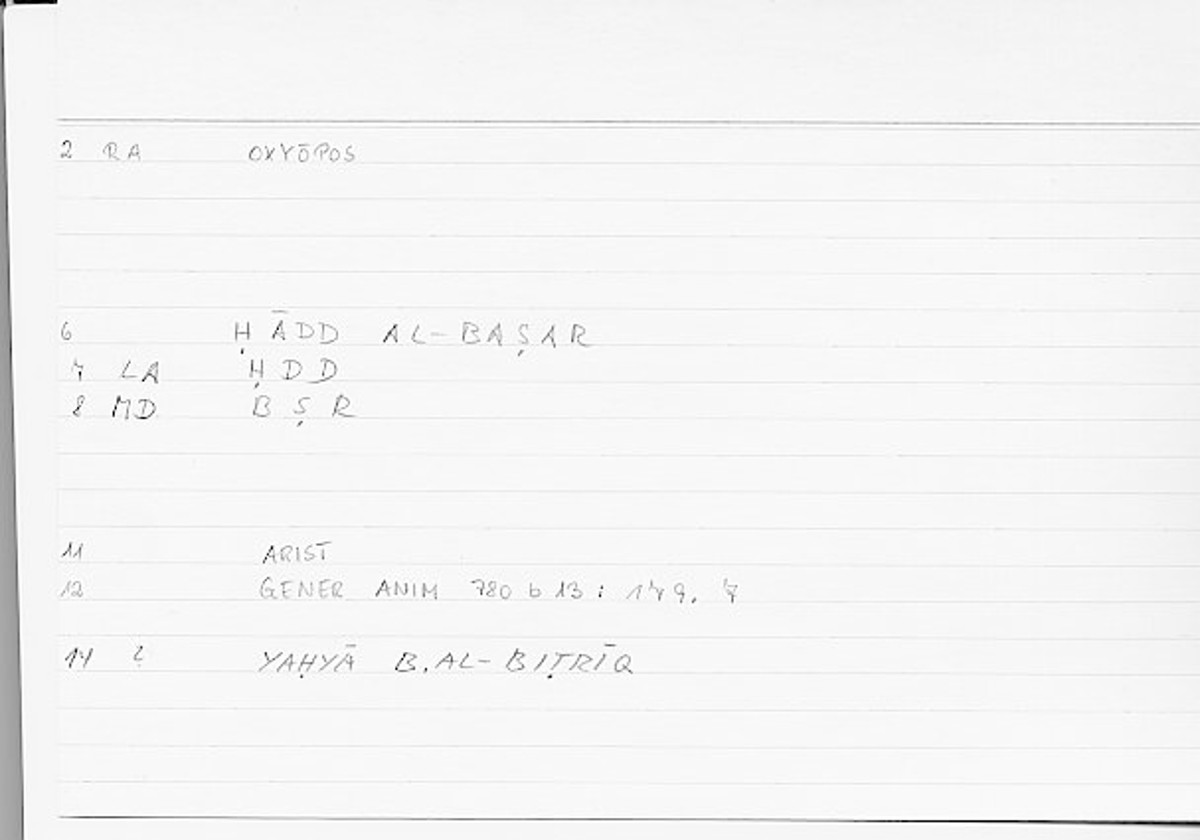 2 RA OXYŌPOS
6 ḤĀDD AL-BAṢAR
7 LA ḤDD
8 MD BṢR
11 ARIST
12 GENER ANIM 780 b 13 : 179. 7
14 ? YAḤYĀ B. AL-BIṬRĪQ